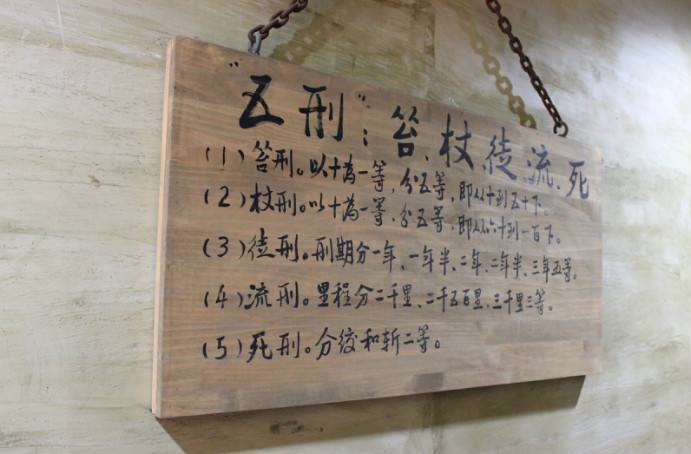 "五刑"：笞、杖、徒、流、死
(1)笞刑。以十为一等，分五等，即从十到五十下。
(2)杖刑。以十为一等，分五等，即从六十到一百下。
(3)徒刑。刑期分一年、一年半、二年、二年半、三年五等。
(4)流刑。里程分二千里、二千五百里、三千里三等。
(5)死刑。分绞和斩二等。